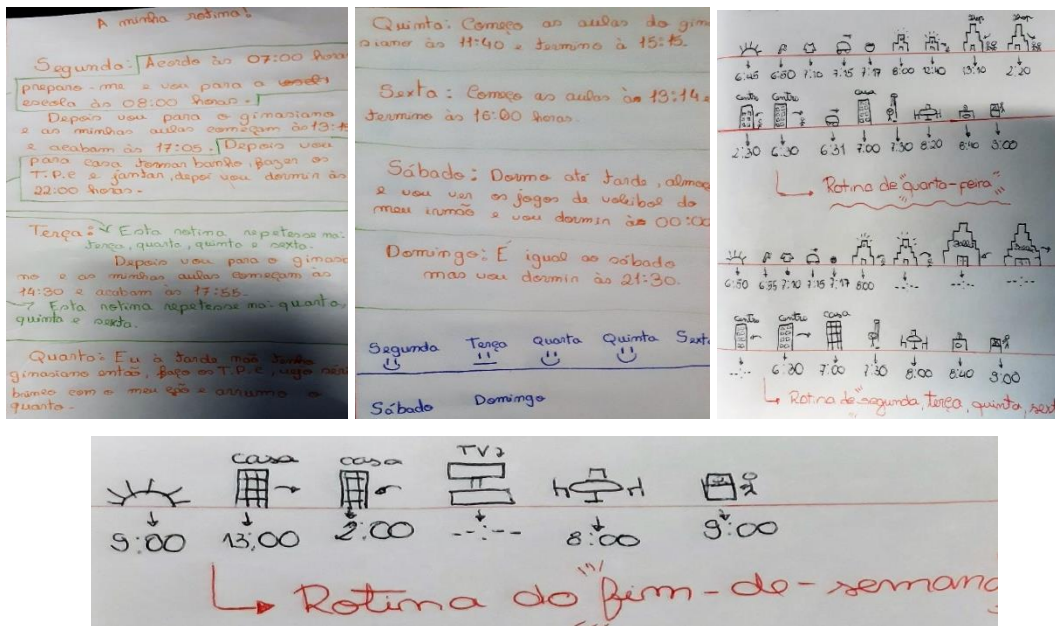 A minha rotina!
Segunda: Acordo às 07:00 hora
preparo-me e vou para a
escola às 08:00 horas.
Depois vou para o ginasiano
e as minhas aulas começam às 13:15
e acabam às 17:05. Depois vou
para casa tomar banho, fazer os
T.P.C e jantar, depois vou dormir às
22:00 horas.
Terça: Esta rotina repetesse na:
terça, quarta, quinta e sexta.
Depois vou para o ginasia
no e as minhas aulas começam às
14:30 e acabam às 17:55.
Esta rotina repetesse na: quarta,
quinta e sexta.
Quarta: Eu à tarde não tenho
ginasiano então, faço os T.P.C, vejo séri
brinco com o meu cão e arrumo o
quarto.
Quinta: Começo as aulas do gin
asiano às 11:40 e termino à 15:15.
Sexta: Começo as aulas às 13:14 e
termino às 16:00 horas.
Sábado: Dormo até tarde, almoç
e vou ver os jogos de voleibol do
meu irmão e vou dormir às 00:00
Domingo: É igual ao sábado
mas vou dormir às 21:30.
Segunda Terça Quarta Quinta Sext
Sábado Domingo
6:45 6:50 7:10 7:15 7:17 8:00 12:40 13:10 2:20
Centro Centro Casa
2:30 6:30 6:31 7:00 7:30 8:20 8:40 9:00
Rotina de "quarta-feira"
6:50 6:55 7:10 7:15 7:17 8:00 --:-- --:-- --:--
Centro Centro Casa
--:-- 6:30 7:00 7:30 8:00 8:40 9:00
Rotina de "segunda, terça, quinta, sext
casa casa TV
9:00 13:00 2:00 --:-- 8:00 9:00
Rotina do "fim-de-semana